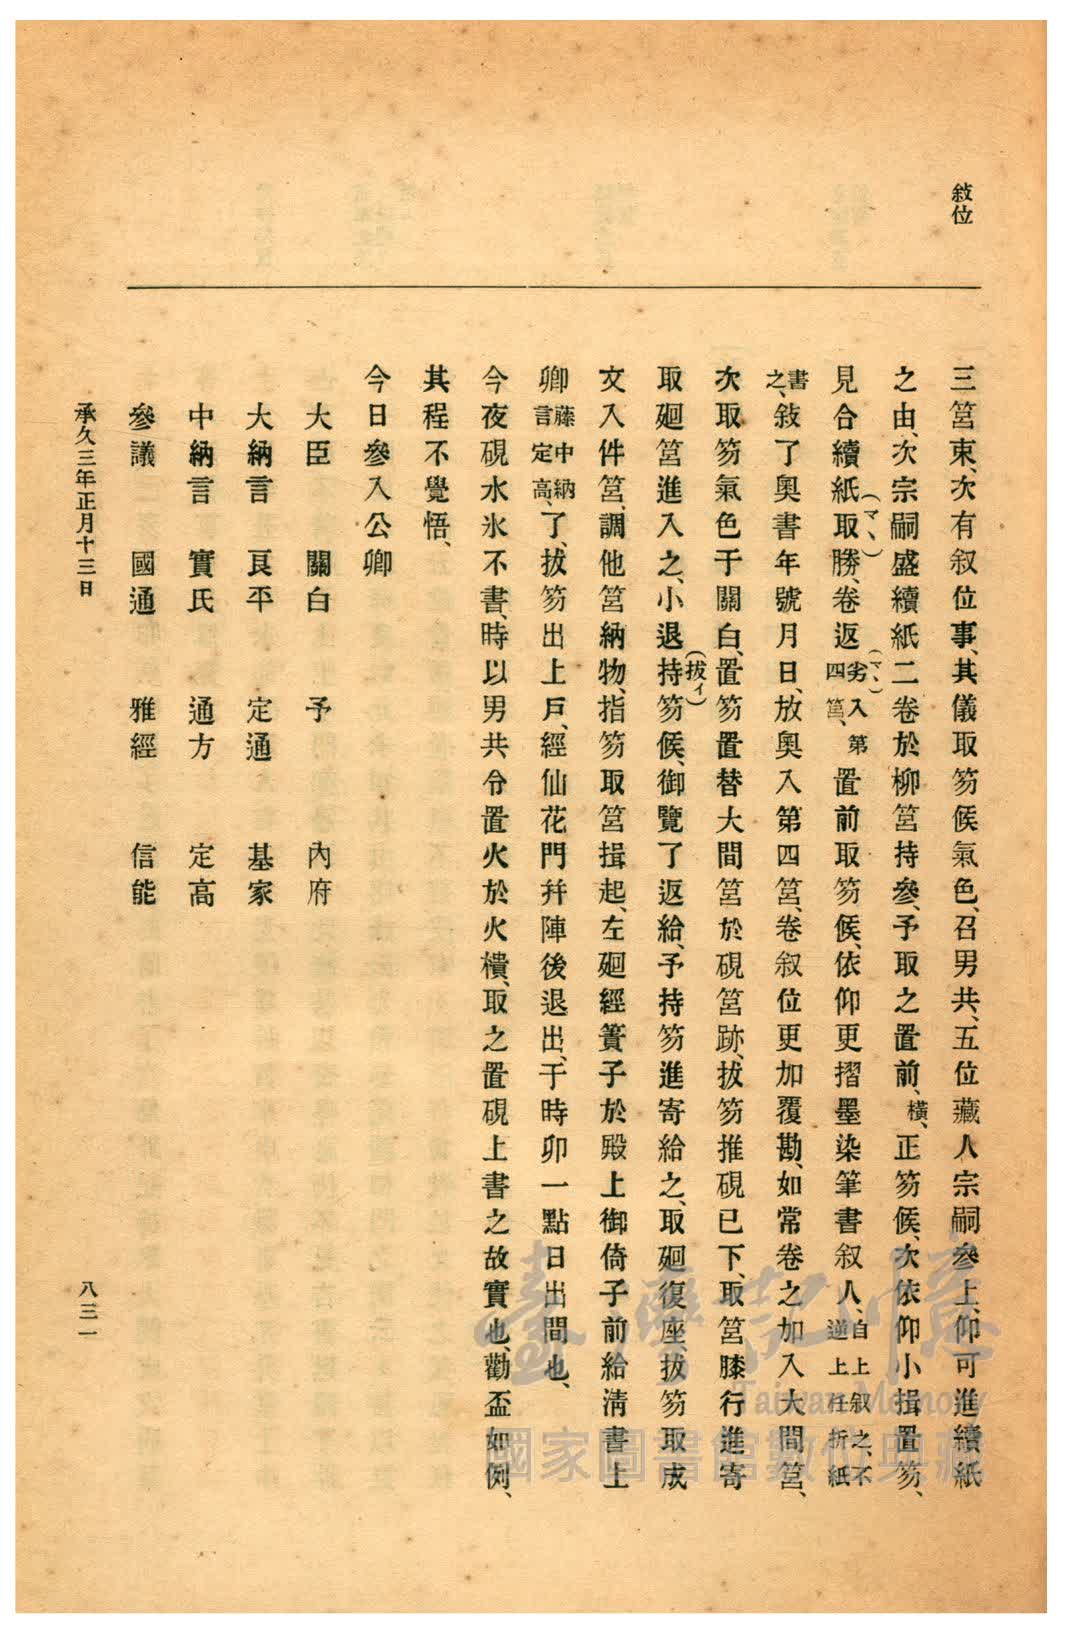 敍位
三筥東、次有叙位事、其儀取笏候氣色、召男共、五位藏人宗嗣參上、仰可進續紙
之由、次宗嗣盛續紙二卷於柳筥持參、予取之置前、横、正笏候、次依仰小揖置笏、
見合續紙(マヽ)取勝、卷返劣(マヽ)入第四筥、置前取笏候、依仰更摺墨染筆書叙人、自上叙之、不逆上任折紙
書之、敍了奥書年號月日、放奥入第四筥、卷叙位更加覆勘、如常卷之加入大間筥、
次取笏氣色于關白、置笏置替大間筥於硯筥跡、拔笏推硯已下、取筥膝行進寄
取廻筥進入之、小退持(拔イ)笏候、御覽了返給、予持笏進寄給之、取廻復座、拔笏取成
文入件筥、調他筥納物、指笏取筥揖起、左廻經簀子於殿上御倚子前給淸書上
卿藤中納言定高、了、拔笏出上戸、經仙花門幷陣後退出、于時卯一點日出間也、
今夜硯水氷不書、時以男共令置火於火樻、取之置硯上書之故實也、勸盃如例、
其程不覺悟、
今日參入公卿
大臣　關白　予　內府
大納言　良平　定通　基家
中納言　實氏　通方　定高
參議　國通　雅經　信能
承久三年正月十三日
八三一
臺灣記憶
Taiwan Memory
國家圖書館數位典藏